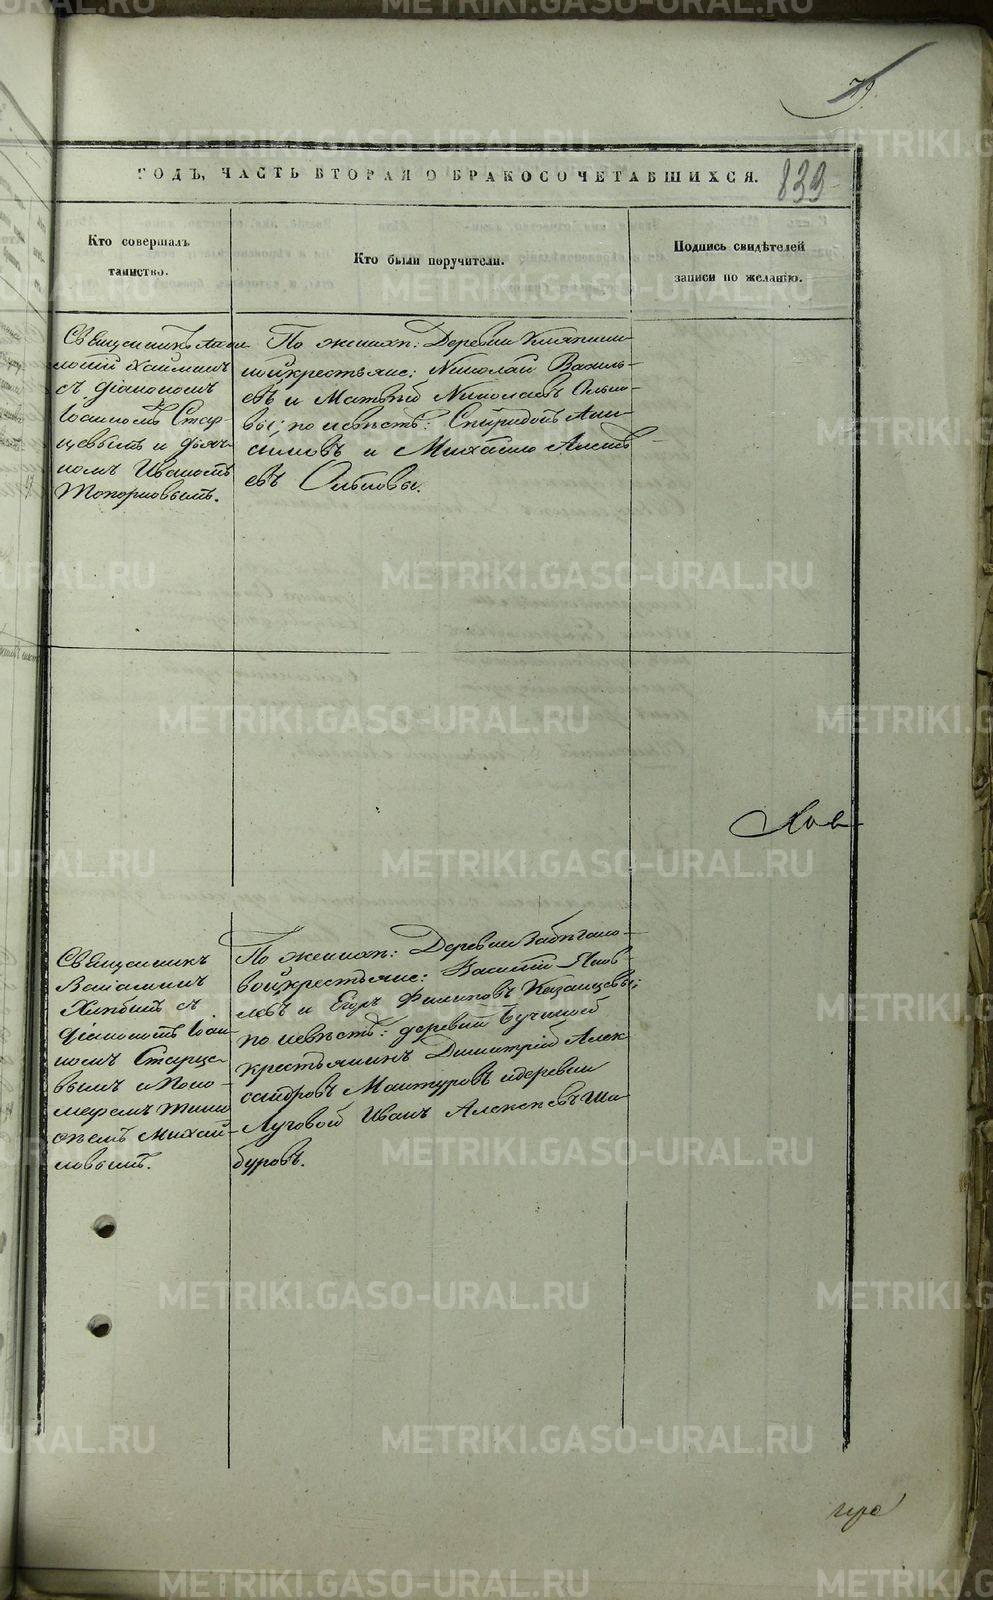 79.
ГОДЪ, ЧАСТЬ ВТОРАЯ О БРАКОСОЧЕТАВШИХСЯ.
839
Кто совершалъ
таинство.
Кто были поручители.
Подпись свидѣтелей
записи по желанію.
Священникъ
съ діакономъ
Іоанномъ Стар-
цевымъ и дьяч-
комъ Иваномъ
Топорковымъ.
По женихѣ: Деревни
крестьяне: Николай Василь-
евъ и Матвѣй Николаевъ Олько-
вы; по невѣстѣ: Спиридонъ Ани-
симовъ и Михайло Алексѣ-
евъ Ольковы.
Священникъ
Веніаминъ
Хлѣбинъ съ
діакономъ Іоан-
номъ Старце-
вымъ и Поно-
маремъ Тимо-
ѳеемъ Михай-
ловымъ.
По женихѣ: Деревни
крестьяне: Василій Яков-
левъ и Егоръ Филиповъ Казанцевы;
по невѣстѣ: деревни Бучиной
крестьянинъ Димитрій Алек-
сандровъ Мантуровъ и деревни
Луговой Иванъ Алексѣевъ Ша-
буровъ.
METRIKI.GASO-URAL.RU